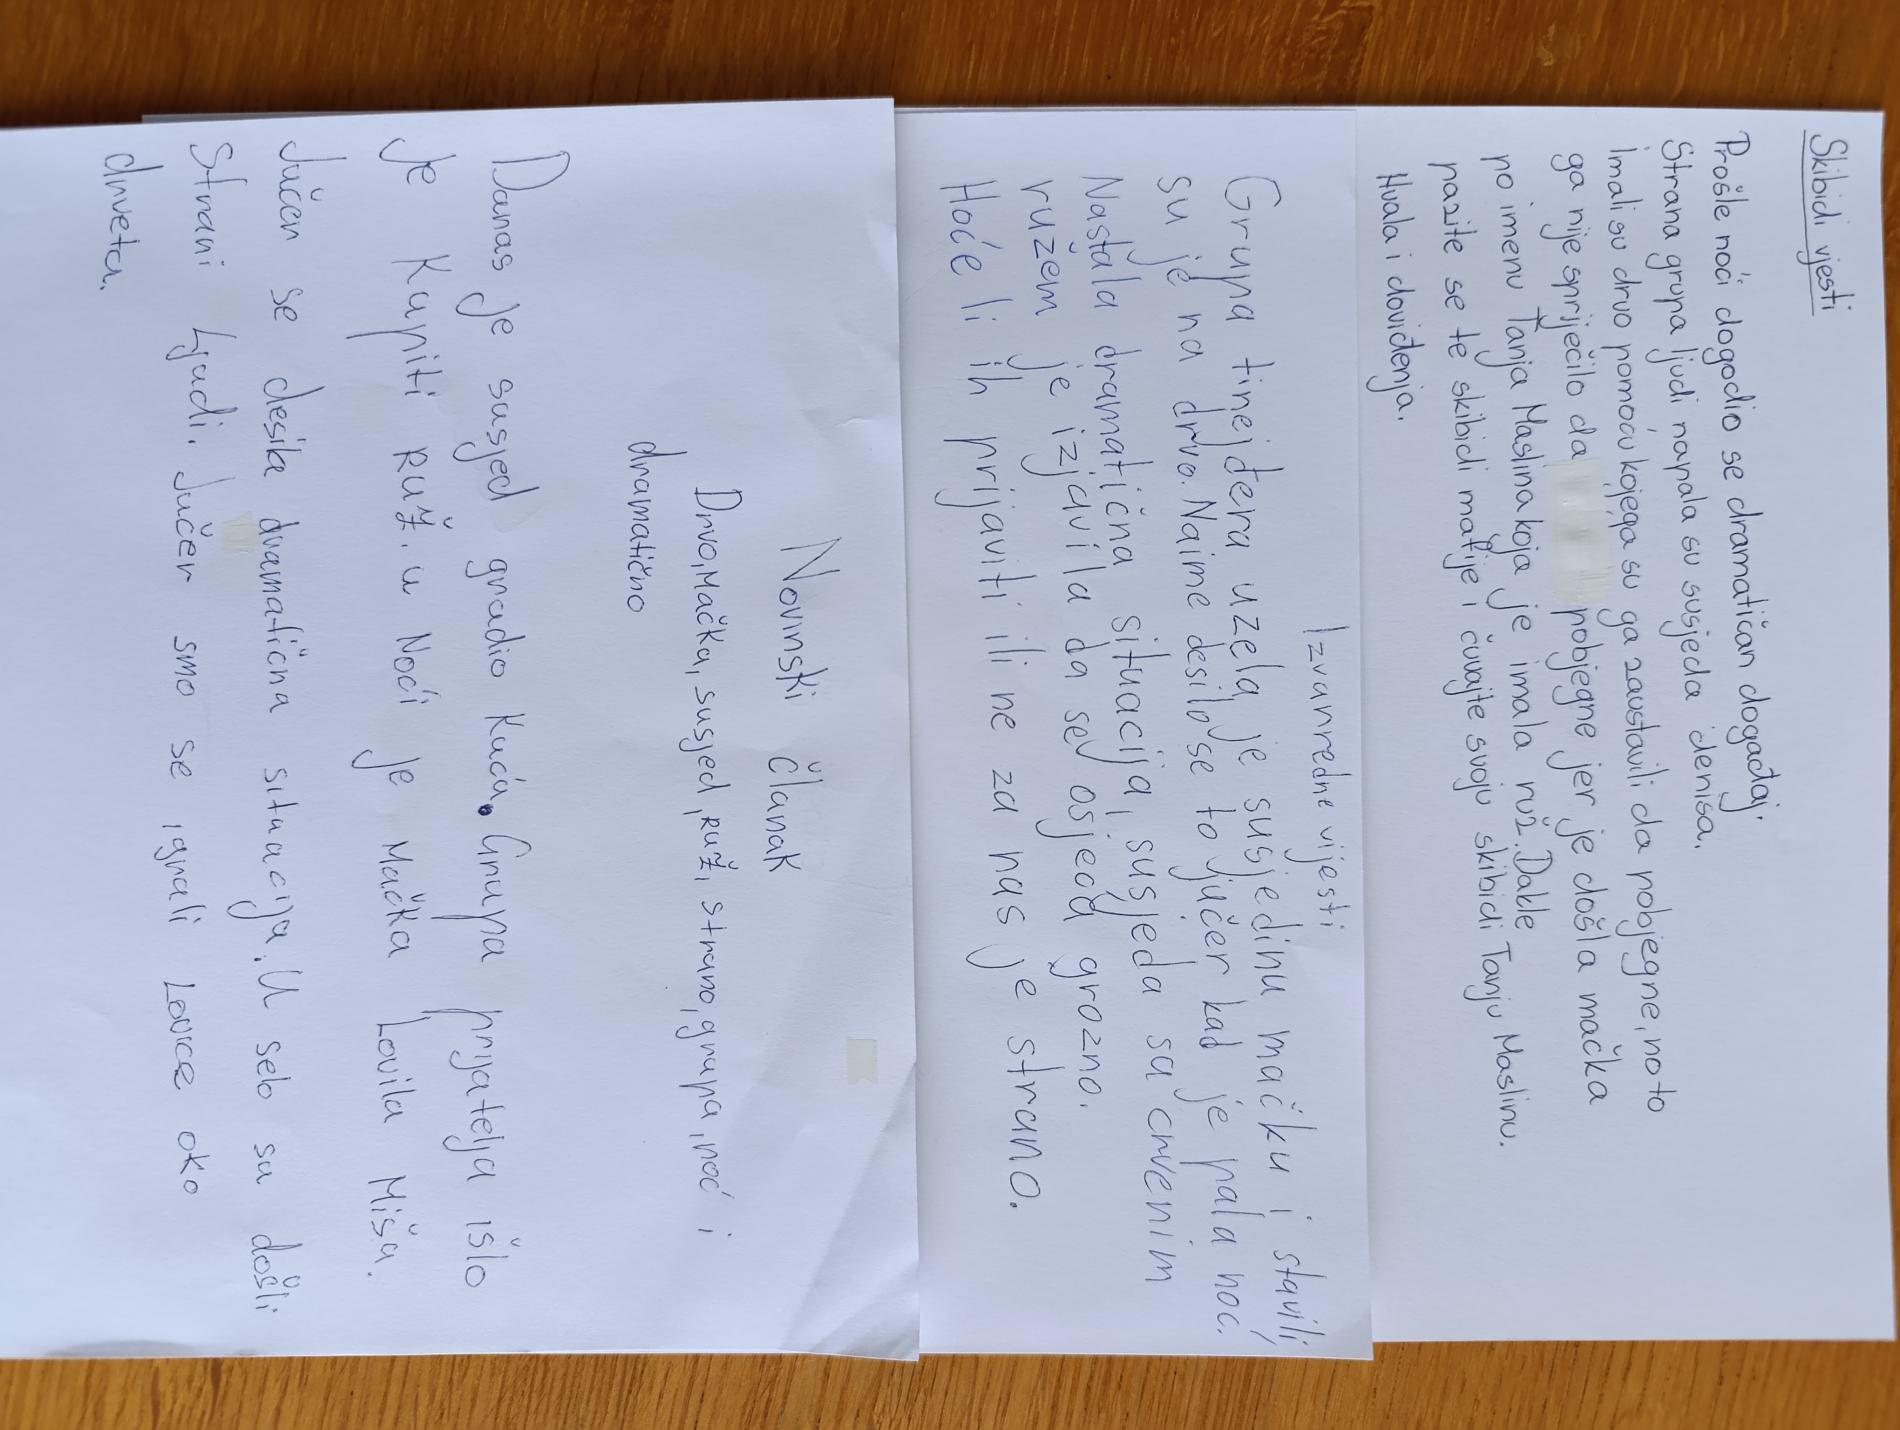 Skibidi vjesti
Prošle noći dogodio se dramatičan događaj.
Strana grupa ljudi napala su susjeda denisa.
Imali su drvo pomoću kojega su ga zaustavili da pobjegne, no to
ga nije spriječilo da pobjegne jer je došla mačka
po imenu Tanja Maslina koja je imala ruž. Dakle
pazite se te skibidi mafije i čuvajte svoju skibidi Tanju Maslinu.
Hvala i doviđenja.
Izvanredne vijesti
Grupa tinejđera uzela je susjedinu mačku i stavili
su je na drvo. Naime desilo se to jučer kad je pala noć.
Nastala dramatična situacija, susjeda sa crvenim
ružem je izjavila da se osjeća grozno.
Hoće li ih prijaviti ili ne za nas je strano.
Novinski članak
Drvo, Mačka, susjed, ruž, strano, grupa, noć i
dramatično
Danas je susjed gradio kuća. Grupa prijatelja išlo
je kupiti ruž. u Noći je Mačka Lovila Miša.
Jučer se desila dramatična situacija. U selo su došli
Strani Ljudi. Jučer smo se igrali Lovice oko
drveta.